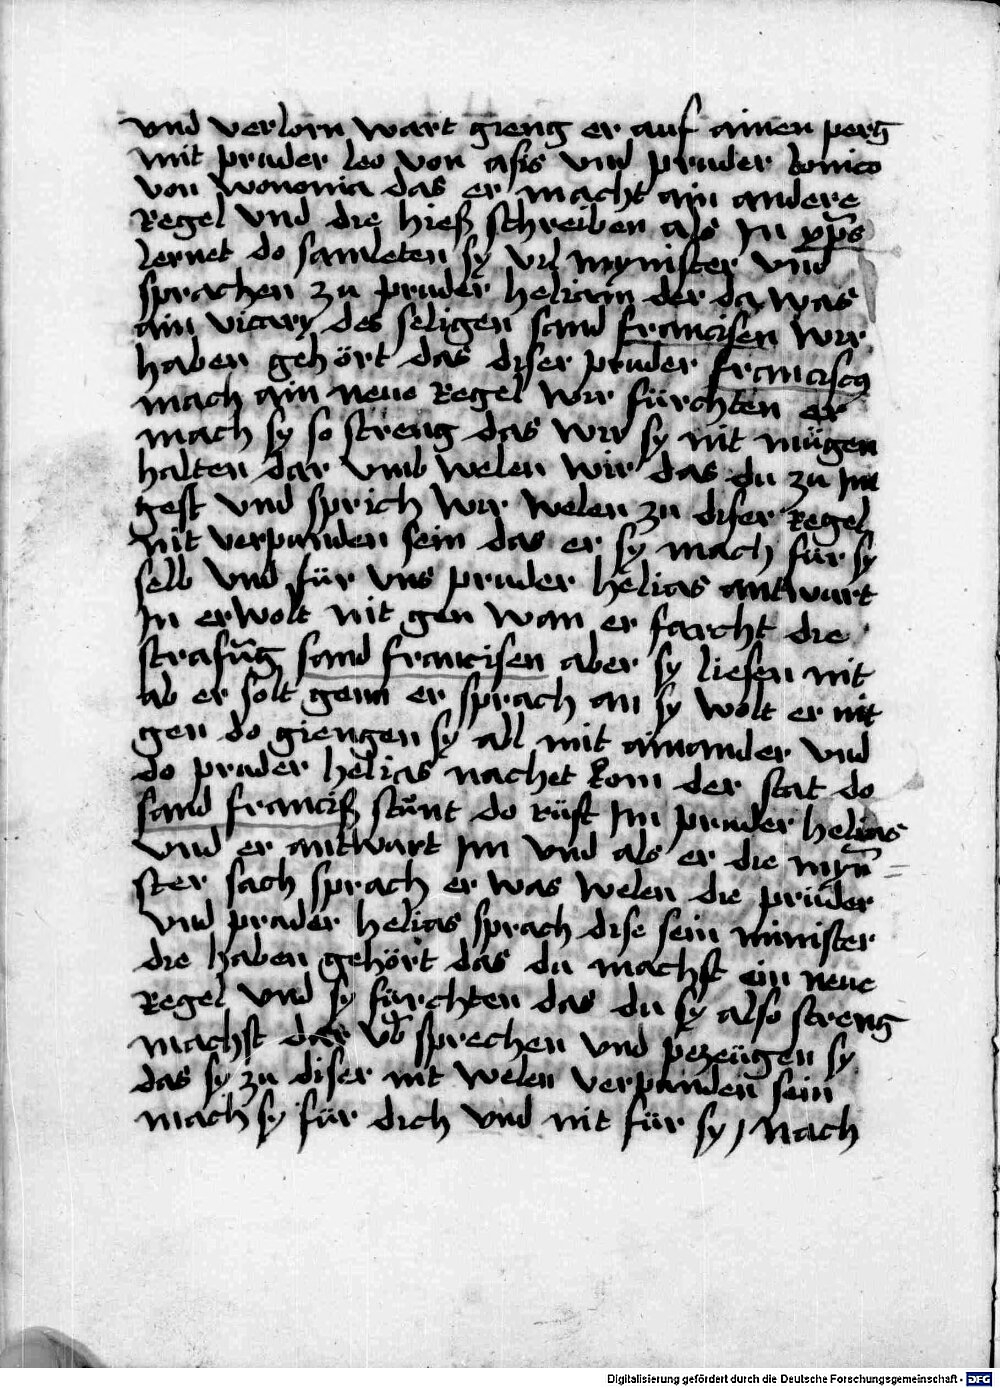 vnd verlorn wart gieng er auf ainen perg
mit pruder leo von asis vnd pruder bonico
von wononia das er macht ain andere
Regel vnd die hieß schreiben als In xp̄s
lernet do samleten sy vil mynister vnd
sprachen zu pruder heliam der da was
ain vicary des seligen sand francisen wir
haben gehört das diser pruder franciscus
mach ain neue Regel wir fürchten er
mach sy so streng das wir sy nit mügen
halten dar vmb welen wir das du zu im
gest vnd sprich wir welen zu diser Regel
nit verpunden sein das er sy mach für sy
selb vnd für vns pruder helias antwurt
In er wolt nit gen wan er farcht die
strafūg sand francisen aber sy liesen nit
ab er solt genn er sprach an sy wolt er nit
gen do giengen sy all mit ainander vnd
do pruder helias nachet kom der stat do
sand franciß stūnt do Rüft Im pruder helias
vnd er antwart Im vnd als er die myn̄
ster sach sprach er was welen die prüder
vnd pruder helias sprach dise sein minister
die haben gehört das du machst ein neue
Regel vnd sy fürchten das du sy also streng
machst dar vb̄ sprechen vnd pezeügen sy
das sy zu diser nit welen verpunden sein
mach sy für dich vnd nit für sy / Nach
Digitalisierung gefördert durch die Deutsche Forschungsgemeinschaft - DFG